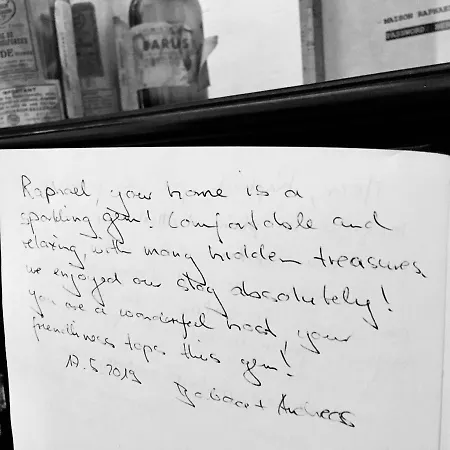 MAISON RAPHAEL
PASSWORD
IMPORTANT
DARUS
Raphael, your home is a
sparkling gem! Comfortable and
relaxing, with many hidden treasures.
we enjoyed our stay absolutely!
you are a wonderful host, your
friendliness tops this gem!
17.5.2019
+ Andreas